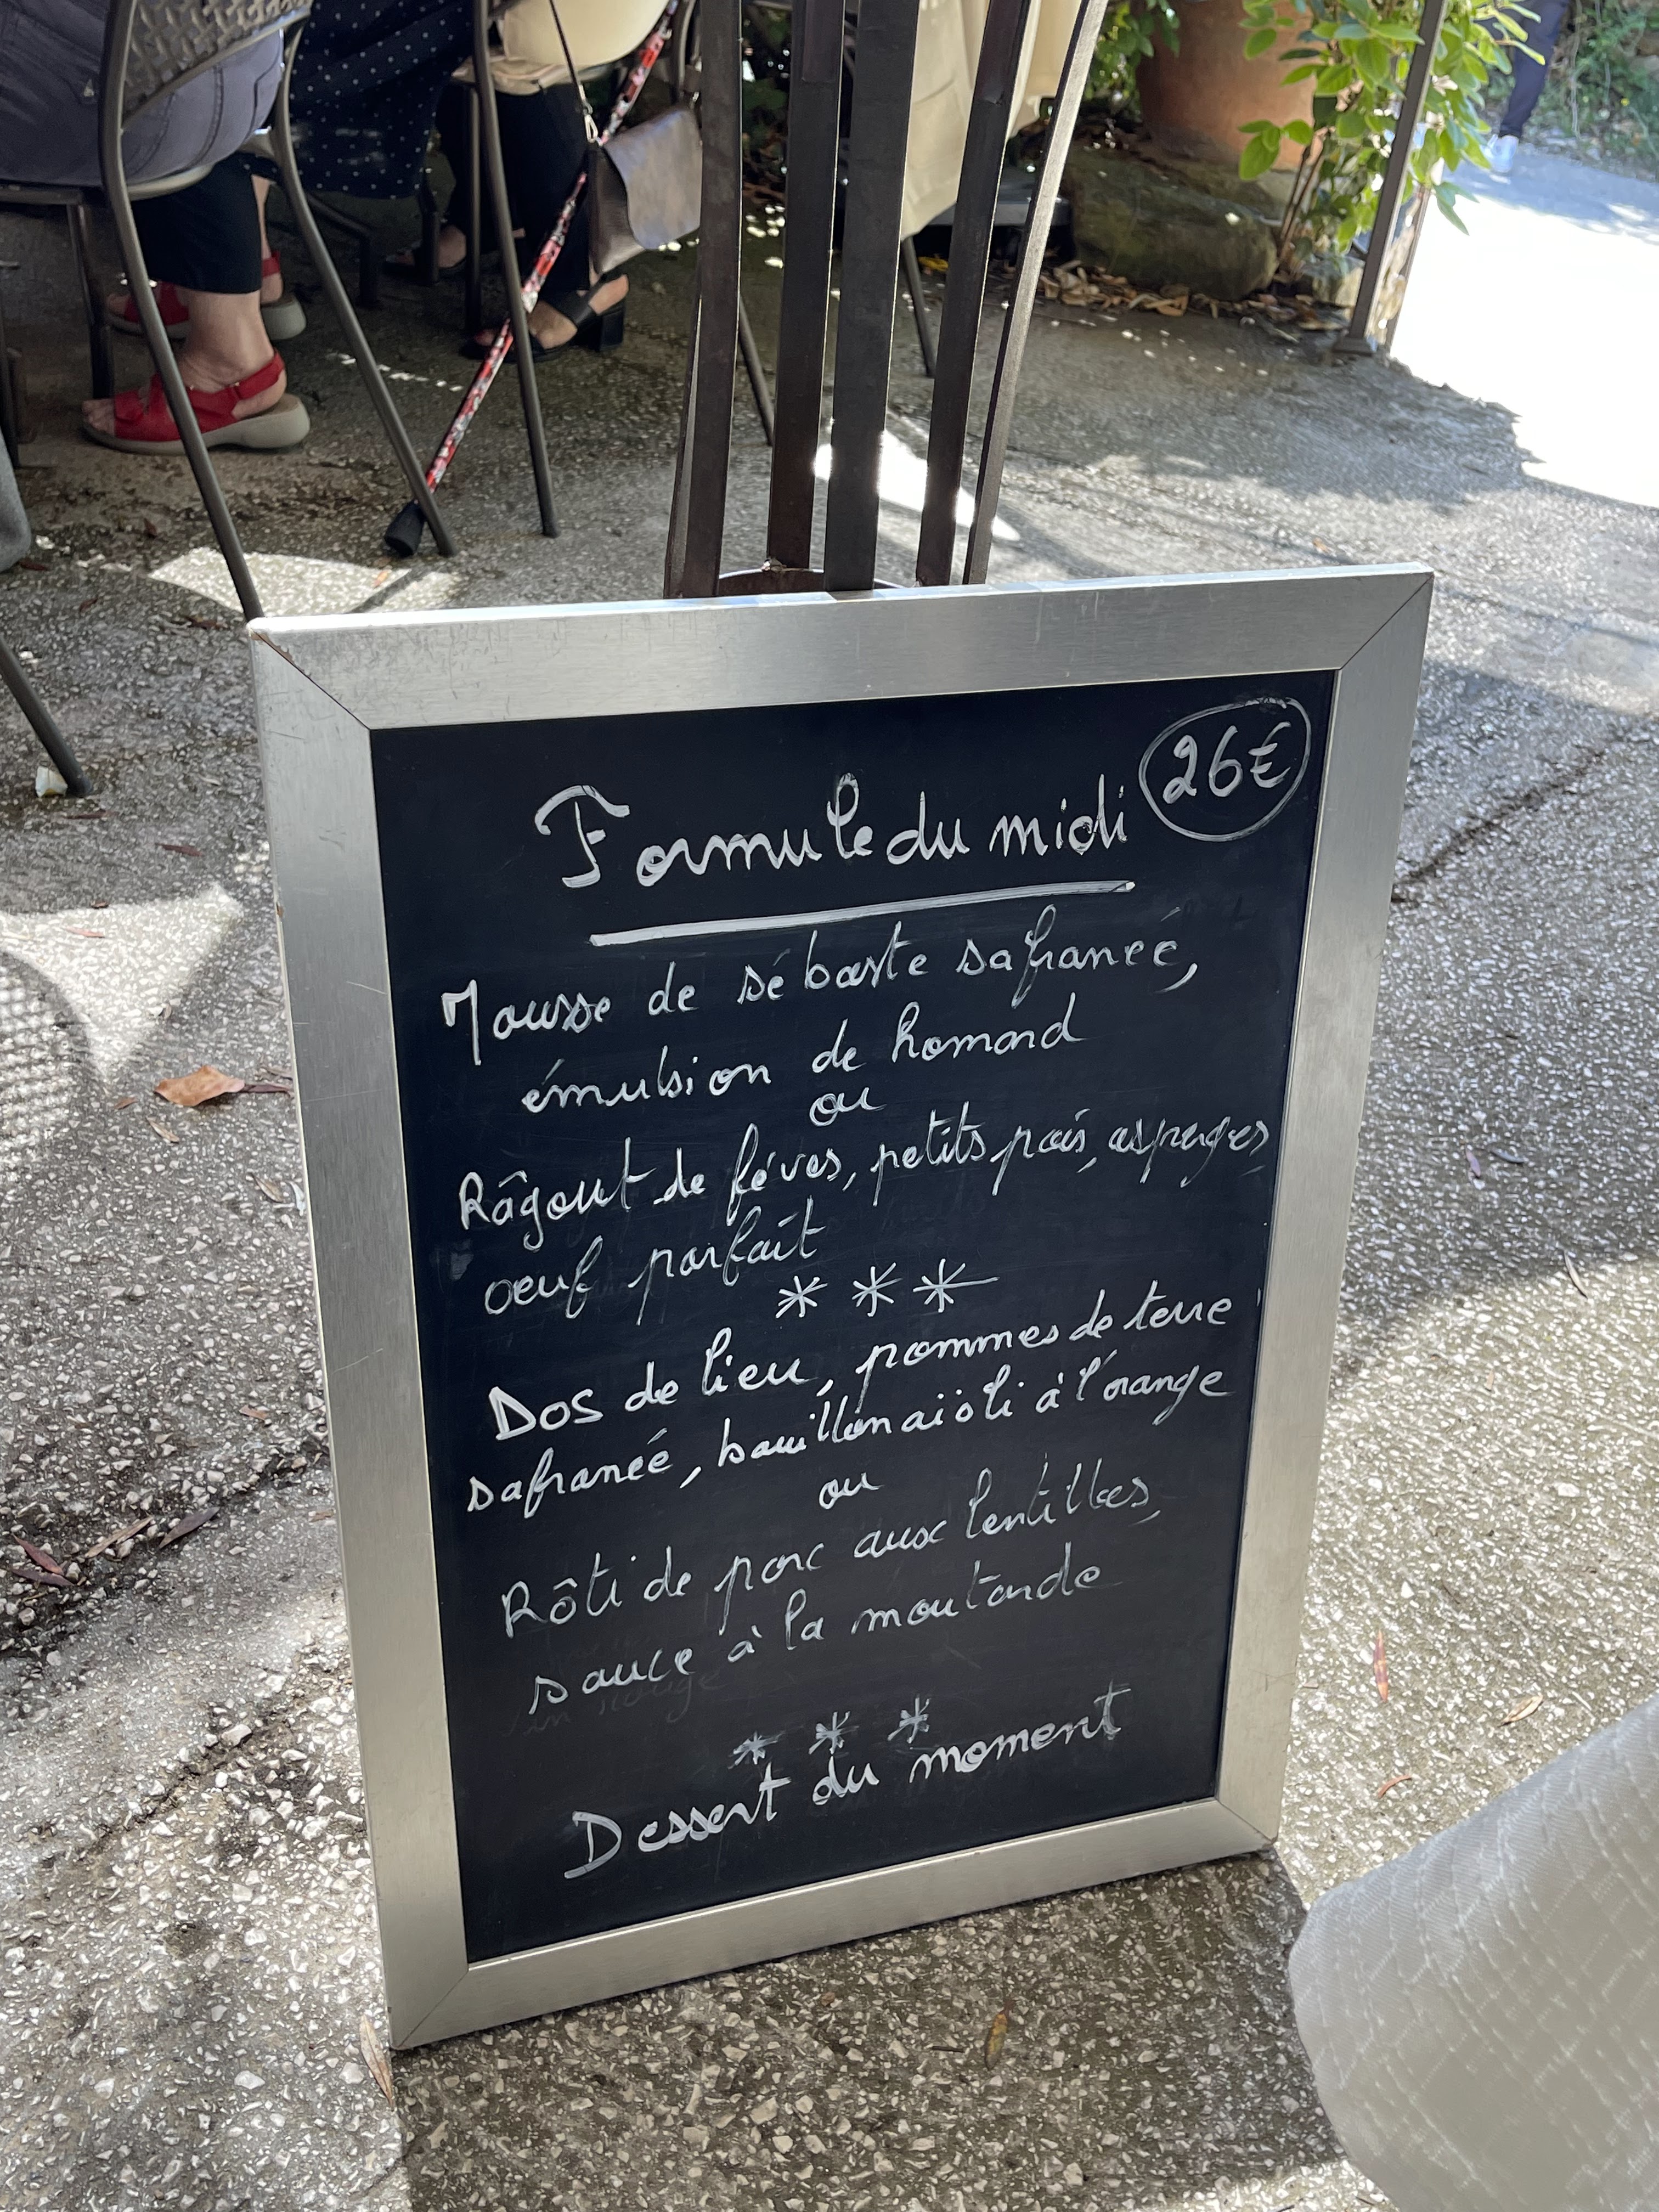 26€
Formule du midi
Mousse de sébaste safranée,
émulsion de homard
ou
Râgout de féves, petits pois, asperges,
oeuf parfait
***
Dos de lieu, pommes de terre
safranée, bouillon aïoli à l'orange
ou
Rôti de porc aux lentilles,
sauce à la moutarde
***
Dessert du moment